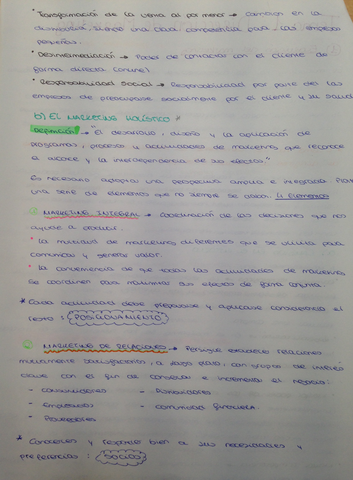 * Transformación de la venta al por menor → Cambian en la
distribución, siendo una clara competencia para las empresas
pequeñas.
* Desintermediación → Poder de contactar con el cliente de
forma directa (online)
* Responsabilidad social → Responsabilidad por parte de las
empresas de preocuparse socialmente por el cliente y su salud
b) EL MARKETING HOLÍSTICO *
Definición → "El desarrollo, diseño y la aplicación de
programas, procesos y actividades de marketing que reconoce
el alcance y la interdependencia de sus efectos."
Es necesario adoptar una perspectiva amplia e integrada.
una serie de elementos que no siempre se 4 elementos
① MARKETING INTEGRAL → Coordinación de las decisiones que nos
ayude a producir.
* La multitud de marketing diferentes que se utiliza para
comunicar y generar valor.
* La conveniencia de que todas las actividades de marketing
se coordinen para maximizar sus efectos de forma conjunta.
* Cada actividad debe prepararse y aplicarse considerando el
resto : POSICIONAMIENTO
② MARKETING DE RELACIONES → Persigue establecer relaciones
mutuamente satisfactorias, a largo plazo, con grupos de interés
clave con el fin de conservar e incrementar el negocio:
- Consumidores - Distribuidores
- Empleados - Comunidad financiera.
- Proveedores
* Conocerles y responder bien a sus necesidades y
preferencias : SOCIOS